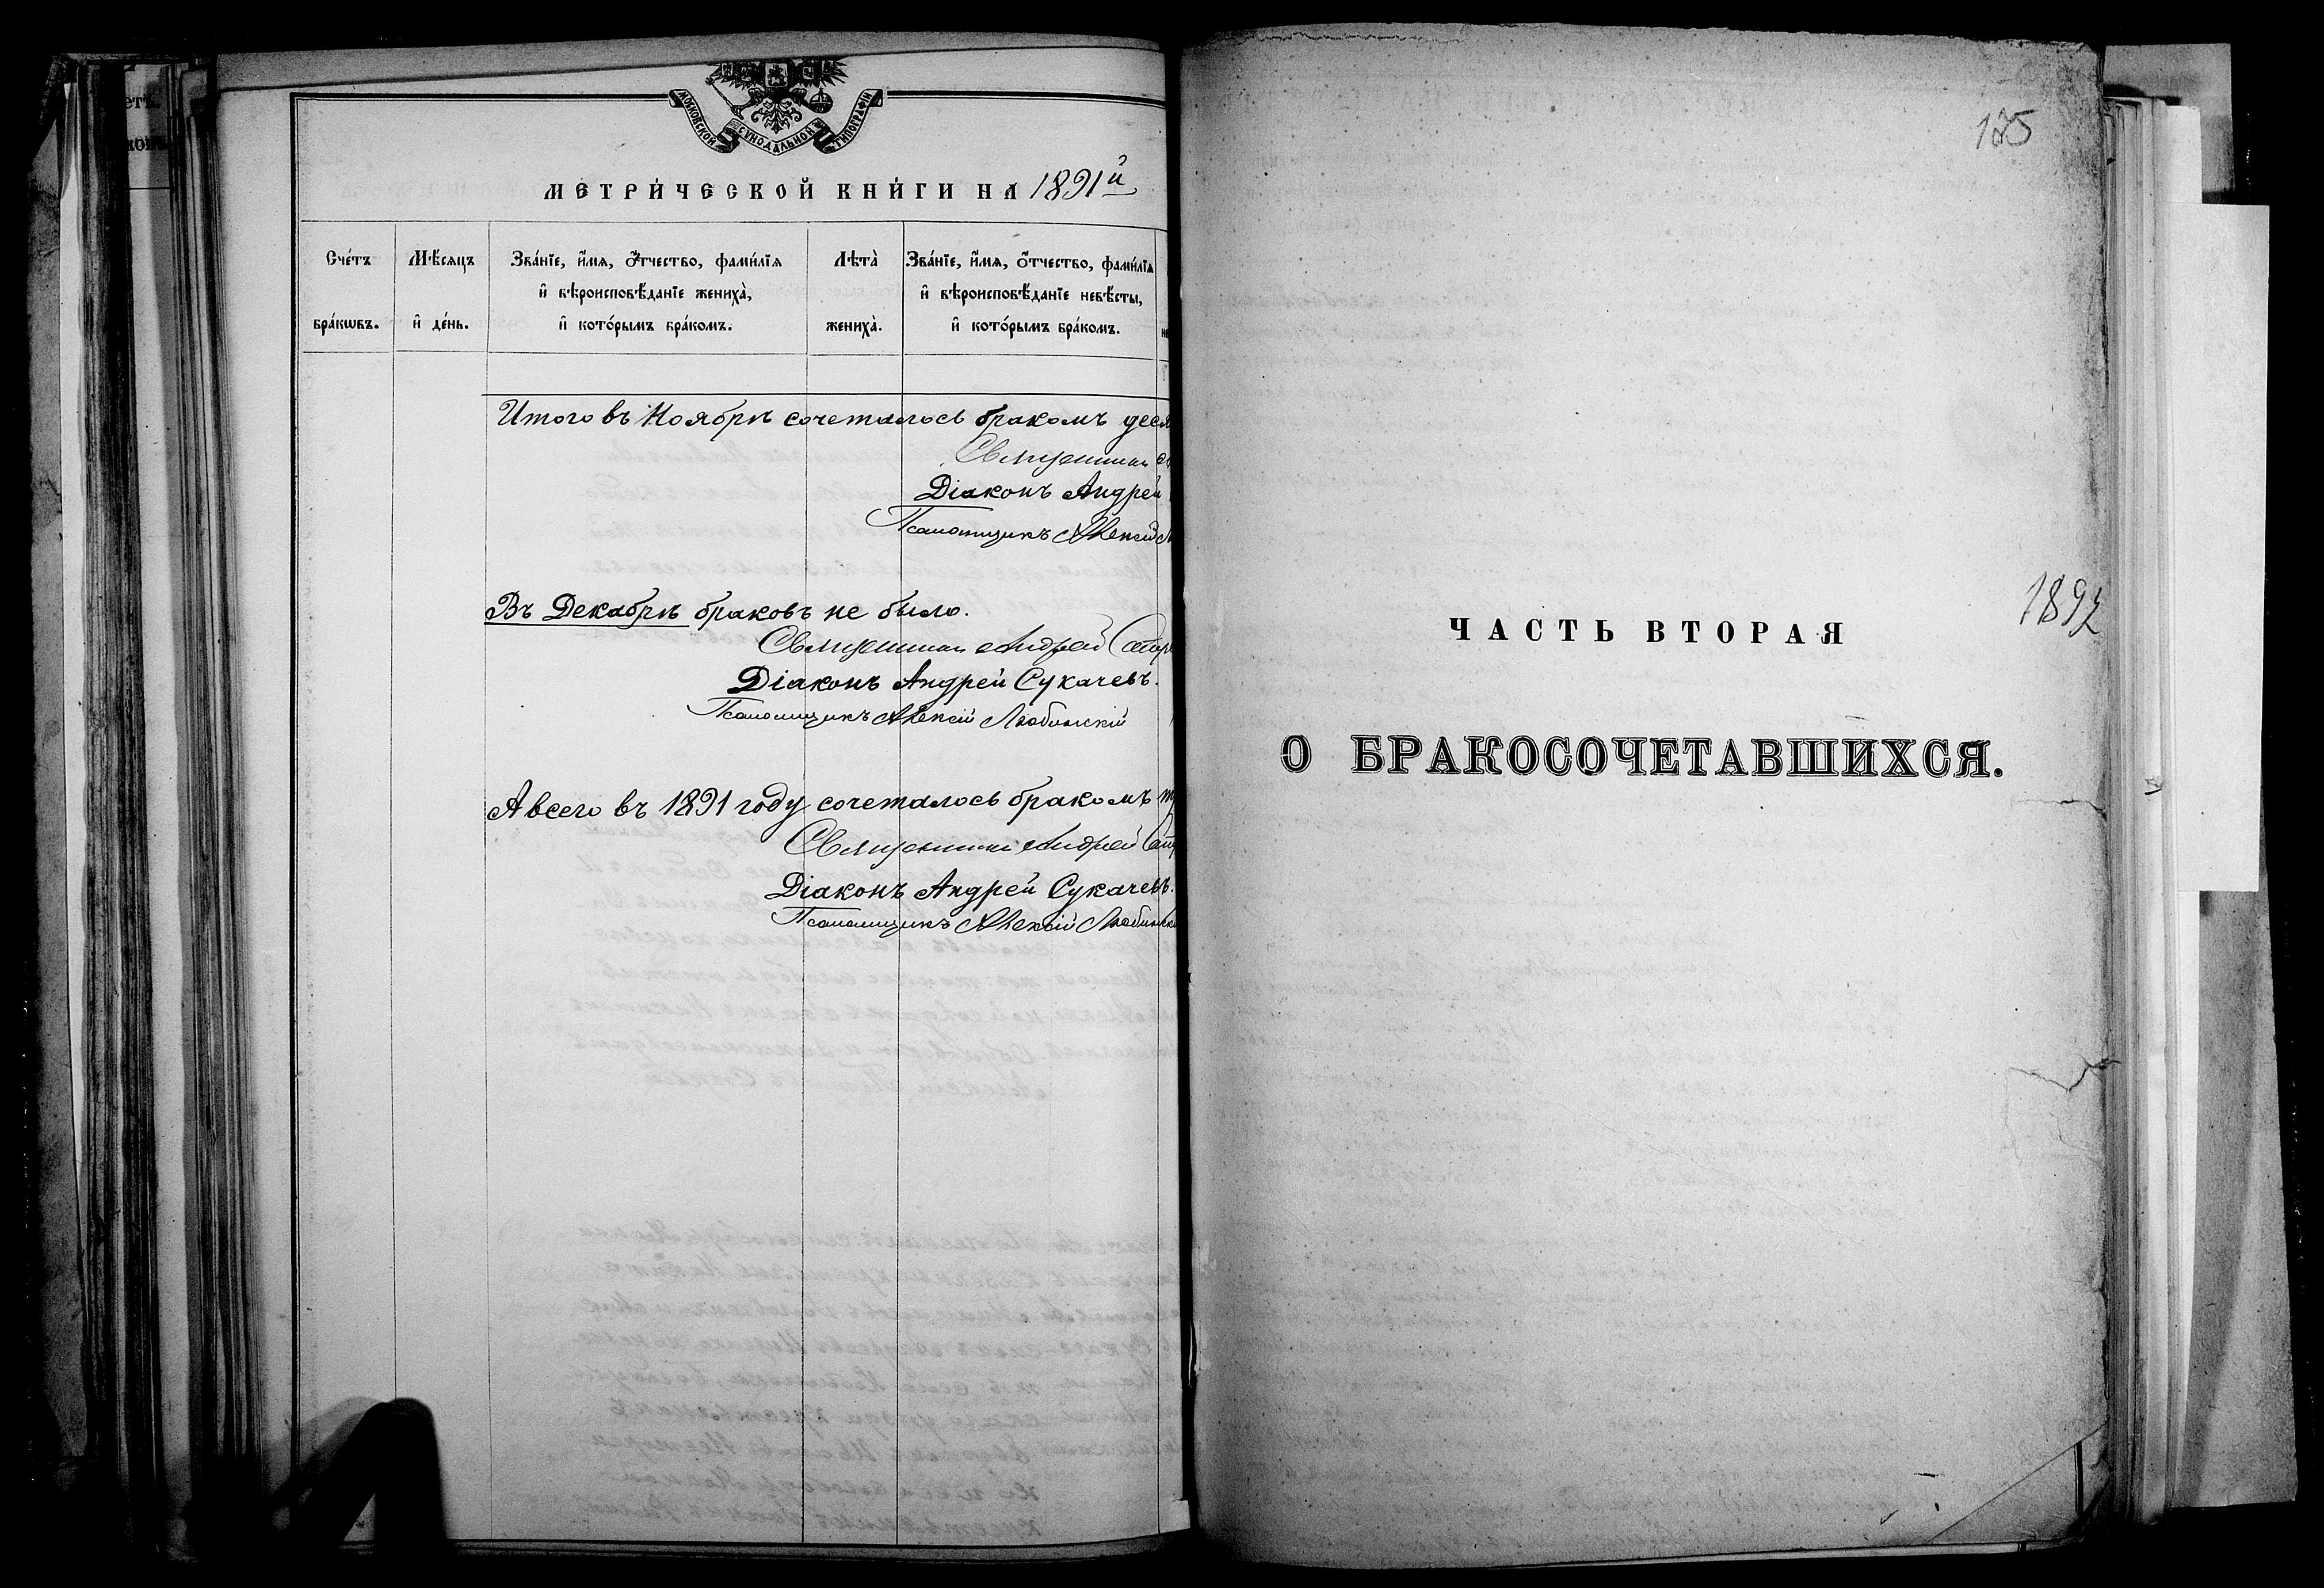 МОСКОВСКОЙ СѴНОДАЛЬНОЙ ТИПОГРАФІИ
МЕТРИ́ЧЕСКОЙ КНИ́ГИ НА 1891й
Сче́тъ бра́кѡвъ.
Мѣ́сяцъ и҆ де́нь.
Зва́нїе, и҆́мѧ, ѻ҆́тчество, фами́лїѧ
и҆ вѣроисповѣ́данїе жениха̀,
и҆ кото́рымъ бра́комъ.
Лѣта̀ жениха̀.
Зва́нїе, и҆́мѧ, ѻ҆́тчество, фами́лїѧ
и҆ вѣроисповѣ́данїе невѣ́сты,
и҆ кото́рымъ бра́комъ.
Итого въ Ноябрѣ сочеталось бракомъ деся
Священникъ
Діаконъ Андрей
Псаломщикъ Алексій
Въ Декабрѣ браковъ не было.
Священникъ Андрей
Діаконъ Андрей Сукачевъ.
Псаломщикъ Алексій Любинскій
А всего въ 1891 году сочеталось бракомъ
Священникъ Андрей
Діаконъ Андрей Сукачевъ.
Псаломщикъ Алексій Любинскі
1892
ЧАСТЬ ВТОРАЯ
О БРАКОСОЧЕТАВШИХСЯ.